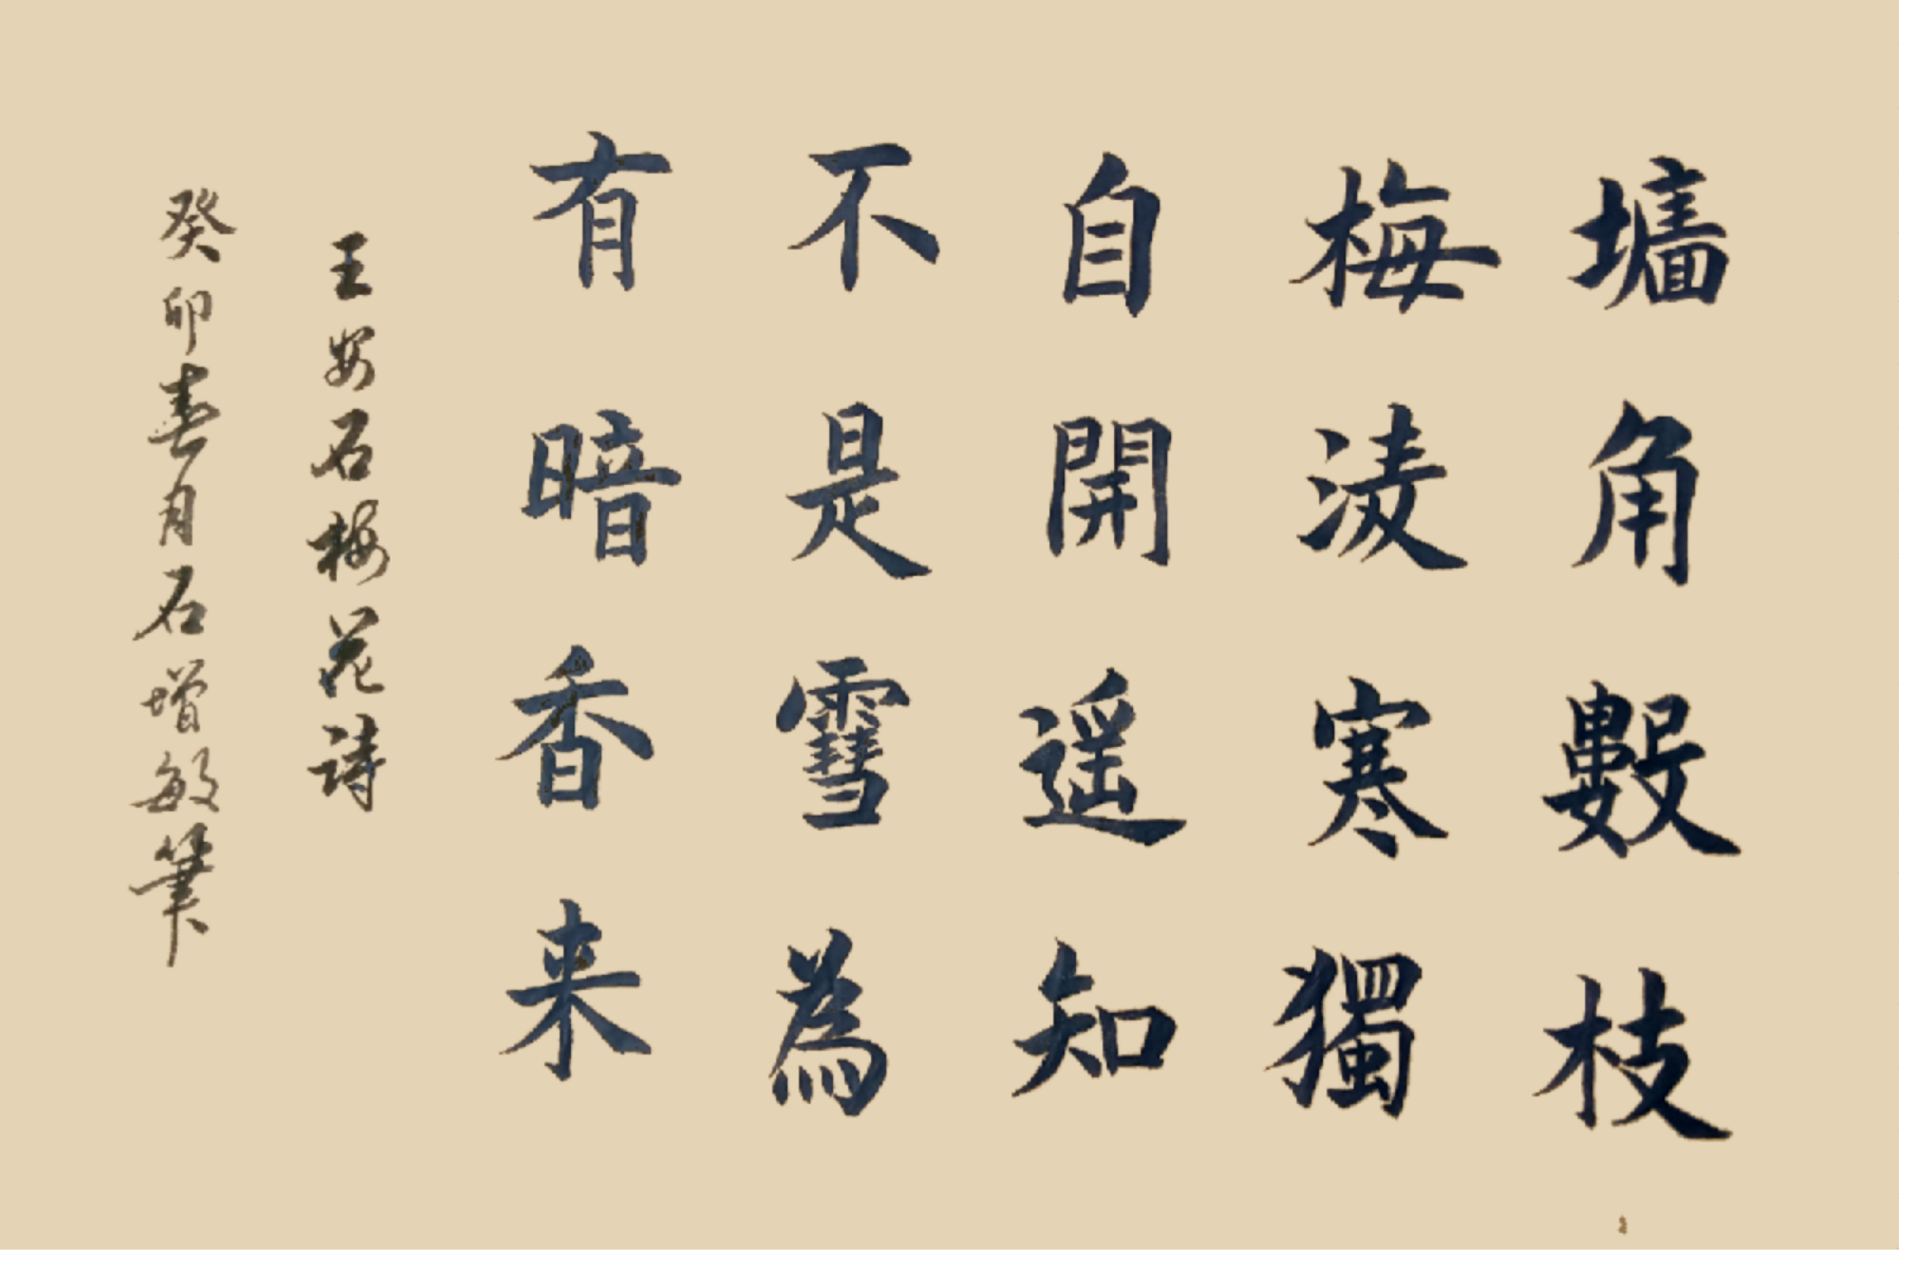 墻角數枝
梅凌寒獨
自開遥知
不是雪為
有暗香来
王安石梅花詩
癸卯春月石增敏筆